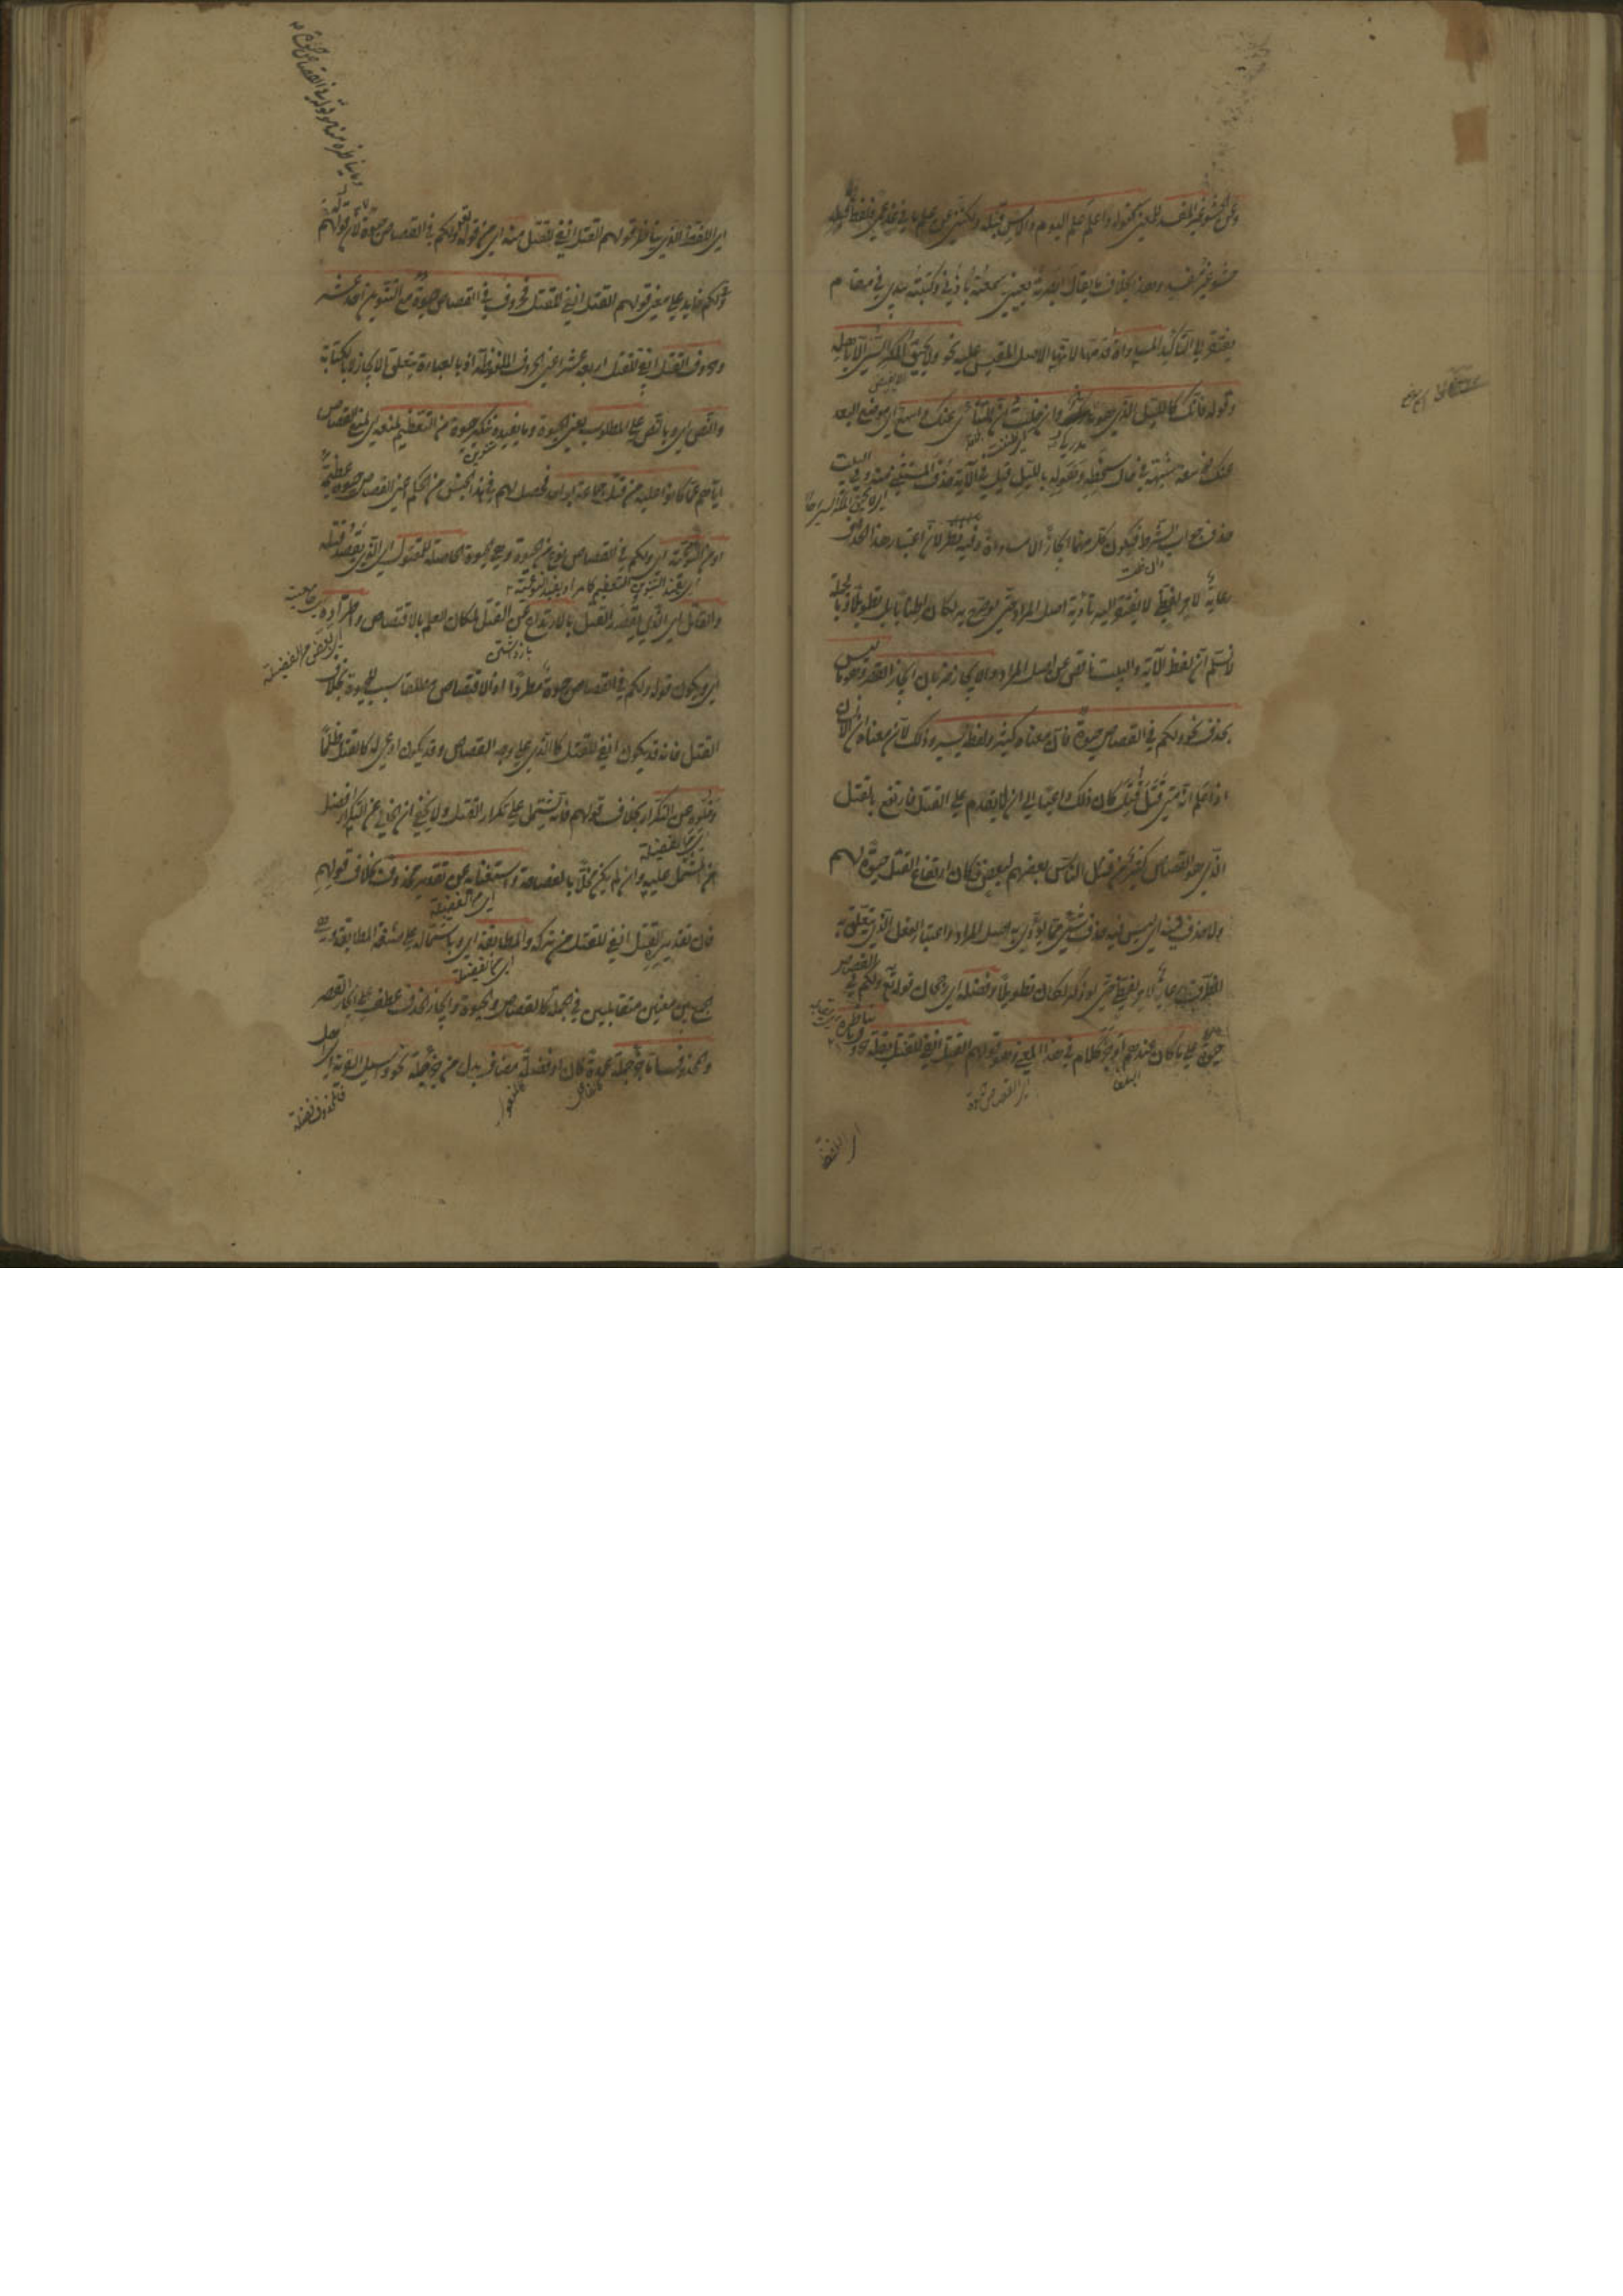 وعن الحشو غير المفسد للمعنى كقوله واعلم علم اليوم والامس قبله ولكننى عن علم ما فى غد عمى فلفظ قبله
حشو غير مفسد وهذا بخلاف ما يقال ابصرته بعينى وسمعته باذنى وكتبته بيدى فى مقام
يفتقر الى التاكيد المساواة قدمها لانها الاصل المقيس عليه نحو ولا يحيق المكر السيئ الا باهله
وقوله فانك كالليل الذى هو مدركى وان خلت ان المنتأى عنك واسع اى موضع البعد
عنك ذو سعة شبهه فى حال سخطه وهوله بالليل قيل فى الآية حذف المستثنى منه وفى البيت
حذف جواب الشرط فيكون كل منهما ايجازا لا مساواة وفيه نظر لان اعتبار هذا الحذف
رعاية لامر لفظى لا يفتقر اليه تأدية اصل المراد حتى لو صرح به لكان اطنابا بل تطويلا وبالجملة
لا نسلم ان لفظ الآية والبيت ناقص عن اصل المراد والايجاز ضربان ايجاز القصر وهو ما ليس
بحذف نحو ولكم فى القصاص حيوة فان معناه كثير ولفظه يسير وذلك لان معناه ان الانسان
اذا علم انه متى قتل قتل كان ذلك داعيا الى ان لا يقدم على القتل فارتفع بالقتل
الذى هو القصاص كثير من قتل الناس بعضهم لبعض فكان ارتفاع القتل حيوة لهم
ولا حذف فيه اى ليس فيه حذف شئ مما يؤدى به اصل المراد واعتبار الفعل الذى يتعلق به
الظرف رعاية لامر لفظى حتى لو ذكر لكان تطويلا وفضله اى رجحان قوله تع ولكم فى القصاص
حيوة على ما كان عندهم اوجز كلام فى هذا المعنى وهو قولهم القتل انفى للقتل بقلة حروف ما يناظره
اى اللفظ
اى اللفظ الذى يناظر قولهم القتل انفى للقتل منه اى من قوله تعالى ولكم فى القصاص حيوة لان قولهم
ولكم زايد على معنى قولهم القتل انفى للقتل فحروف فى القصاص حيوة مع التنوين احد عشر
وحروف القتل انفى للقتل اربعة عشر اعنى الحروف الملفوظة اذ بالعبارة يتعلق الايجاز لا بالكتابة
والنص اى وبالنص على المطلوب يعنى الحيوة وما يفيده تنكير حيوة من التعظيم لمنعه اى لمنع القصاص
اياهم عما كانوا عليه من قتل جماعة بواحد فحصل لهم فى هذا الجنس من الحكم اعنى القصاص حيوة عظيمة
او من النوعية اى ولكم فى القصاص نوع من الحيوة وهى الحيوة الحاصلة للمقتول اى الذى يقصد قتله
والقاتل اى الذى يقصد القتل بالارتداع عن القتل لمكان العلم بالاقتصاص واطراده
اى ويكون قوله ولكم فى القصاص حيوة مطردا اذ الاقتصاص مطلقا سبب للحيوة بخلاف
القتل فانه قد يكون انفى للقتل كالذى على وجه القصاص وقد يكون ادعى له كالقتل ظلما
وخلوه عن التكرار بخلاف قولهم فانه يشتمل على تكرار القتل ولا يخفى ان الخالى عن التكرار افضل
من المشتمل عليه وان لم يكن مخلا بالفصاحة واستغنائه عن تقدير محذوف بخلاف قولهم
فان تقديره القتل انفى للقتل من تركه والمطابقة اى وباشتماله على صنعة المطابقة وهى
الجمع بين معنيين متقابلين فى الجملة كالقصاص والحيوة وايجاز الحذف عطف على ايجاز القصر
والمحذوف اما جزء جملة عمدة كان او فضلة مضاف بدل من جزء جملة نحو واسئل القرية اى اهل